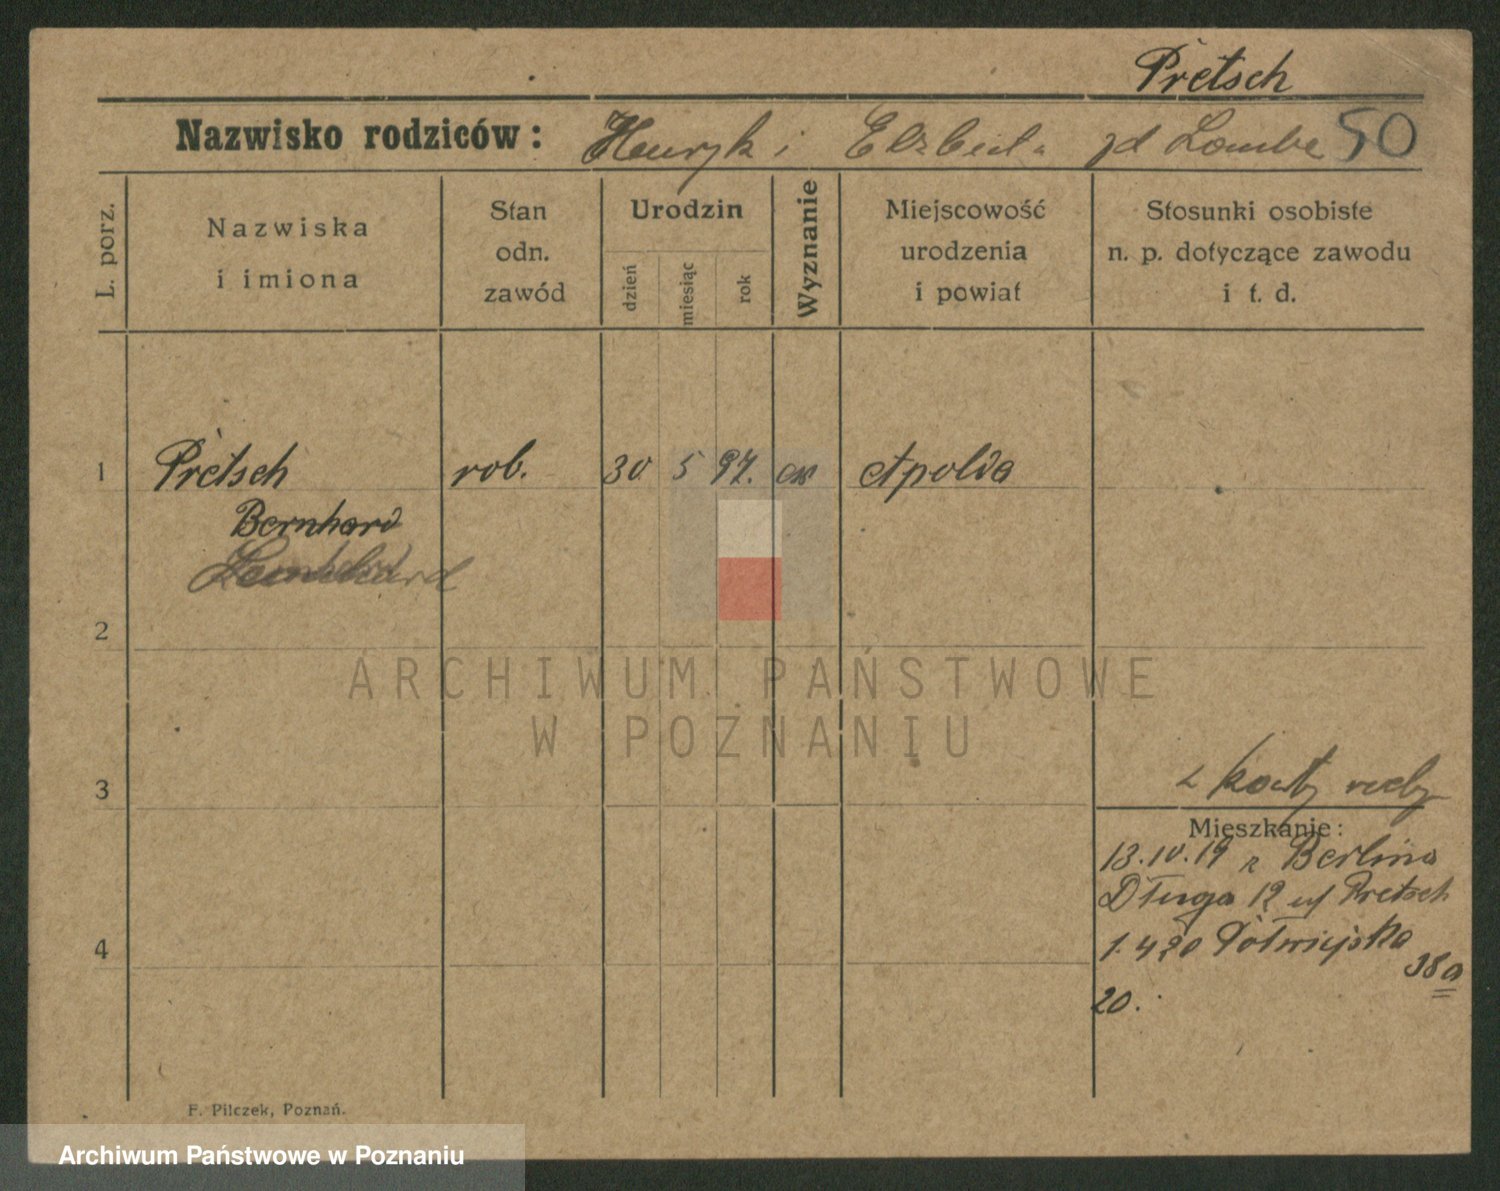 Pretsch
Nazwisko rodziców: Henryk i Elżbieta zd Lombe 50
L. porz.
Nazwiska
i imiona
Stan
odn.
zawód
Urodzin
dzień
miesiąc
rok
Wyznanie
Miejscowość
urodzenia
i powiat
Stosunki osobiste
n. p. dotyczące zawodu
i t. d.
1 Pretsch rob. 30 5 97. ew Apolda
Bernhard
2
ARCHIWUM PAŃSTWOWE
W POZNANIU
3
Mieszkanie:
13.10.19 z Berlina
Długa 12 u/ Pretsch
1.4.20 Półwiejska
38a
4
20.
F. Pilczek, Poznań.
Archiwum Państwowe w Poznaniu